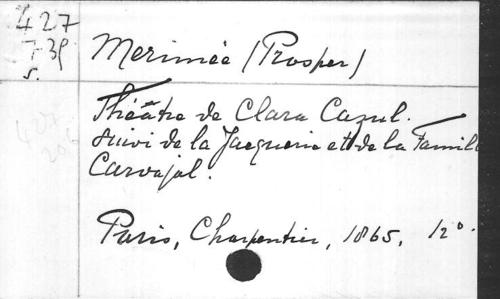 427
739
S.
Merimée (Prosper)
Théâtre de Clara Cazul.
suivi de la Jacquerie et de la Famil
Carvajal.
427
Paris, Charpentier, 1865. 12º.